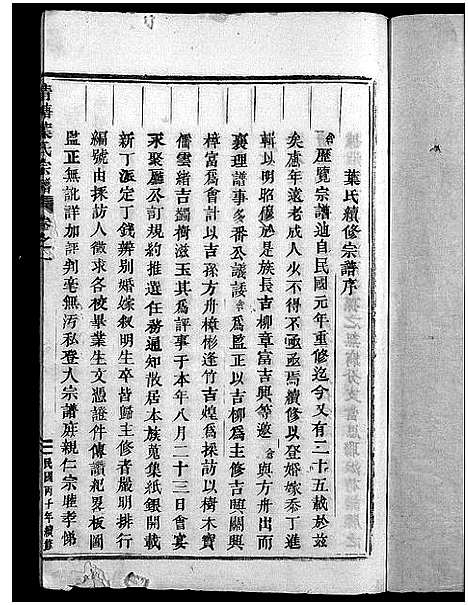 葉氏續修宗譜序
龠歷覽宗譜迪自民國元年重修迄今又有二十五載於玆
矣處年遠老成人火不得不亟亟焉續修以登婚嫁泰丁進
輯以明昭穆於是族長吉柳章富吉興等邀龠與方舟出而
襄理譜事冬番公議諉龠爲監正以吉柳爲主修吉興關興
樟富爲會計以吉孫方舟樟彬逢竹吉煌爲採訪以樹木寶
儒雲緒吉蠲樹滋玉其爲評事于本年八月二十三日會宴
永聚廳公訂規約推選任務通知散居本族蒐集紙銀開載
新丁派定丁錢辨別婚嫁叙明生卒皆歸主修者嚴明排行
編號由採訪人徵求各校畢業生文憑證件傳讚祀畧板圖
監正無訛詳加評判毫無污私登入宗譜庶親仁宗睦孝悌
葉氏宗譜
卷之一
民國丙子年續修